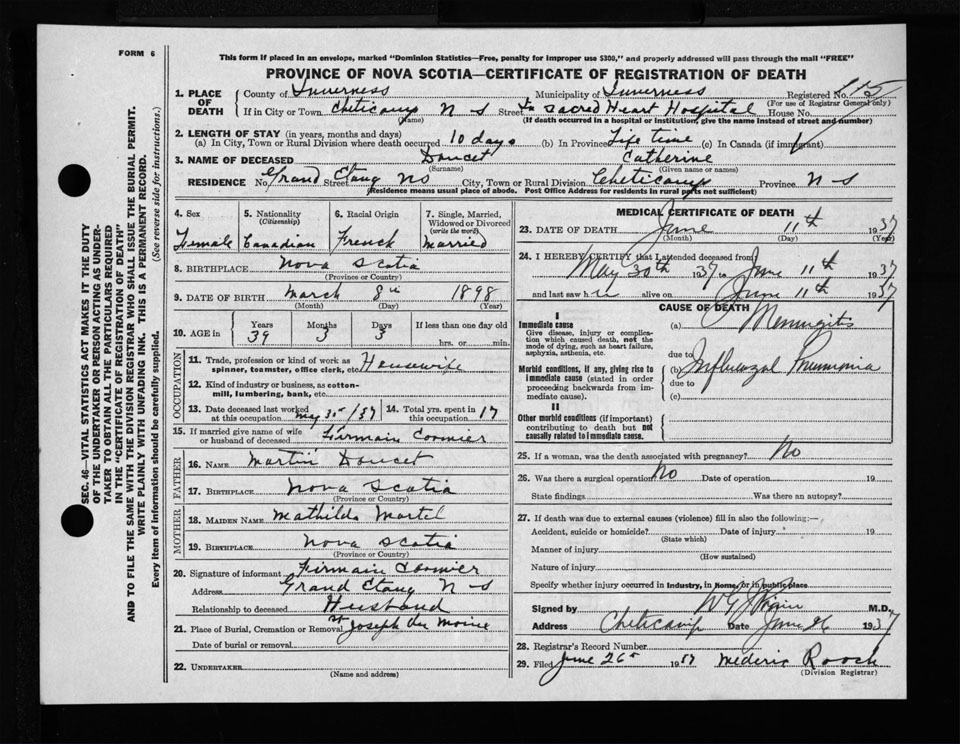 FORM 6
This form if placed in an envelope, marked "Dominion Statistics—Free, penalty for improper use $300," and properly addressed will pass through the mail "FREE"
PROVINCE OF NOVA SCOTIA—CERTIFICATE OF REGISTRATION OF DEATH
1. PLACE OF DEATH County of Inverness Municipality of Inverness Registered No. 115
(For use of Registrar General only)
If in City or Town Cheticamp N S Street In Sacred Heart Hospital House No.
(Name) (If death occurred in a hospital or institution, give the name instead of street and number)
2. LENGTH OF STAY (in years, months and days)
(a) In City, Town or Rural Division where death occurred 10 days (b) In Province Life time (c) In Canada (if immigrant)
3. NAME OF DECEASED Doucet Catherine
(Surname) (Given name or names)
RESIDENCE No. Grand Street Etang NS City, Town or Rural Division Cheticamp Province N-S
(Residence means usual place of abode. Post Office Address for residents in rural parts not sufficient)
4. Sex
Female
5. Nationality
(Citizenship)
Canadian
6. Racial Origin
French
7. Single, Married, Widowed or Divorced
(write the word)
Married
8. BIRTHPLACE Nova Scotia
(Province or Country)
9. DATE OF BIRTH March 8th 1898
(Month) (Day) (Year)
10. AGE in Years Months Days If less than one day old
39 3 3 hrs. or min.
OCCUPATION
11. Trade, profession or kind of work as spinner, teamster, office clerk, etc. Housewife
12. Kind of industry or business, as cotton-mill, lumbering, bank, etc.
13. Date deceased last worked at this occupation May 30 /37 14. Total yrs. spent in this occupation 17
15. If married give name of wife or husband of deceased Firmain Cormier
FATHER
16. NAME Martin Doucet
17. BIRTHPLACE Nova Scotia
(Province or Country)
MOTHER
18. MAIDEN NAME Mathilda Martel
19. BIRTHPLACE Nova Scotia
(Province or Country)
20. Signature of informant Firmain Cormier
Address Grand Etang N-S
Relationship to deceased Husband
21. Place of Burial, Cremation or Removal St Joseph du Moine
Date of burial or removal
22. UNDERTAKER
(Name and address)
MEDICAL CERTIFICATE OF DEATH
23. DATE OF DEATH June 11th 1937
(Month) (Day) (Year)
24. I HEREBY CERTIFY that I attended deceased from
May 30th 1937 to June 11th 1937
and last saw her alive on June 11th 1937
CAUSE OF DEATH
I
Immediate cause
Give disease, injury or complication which caused death, not the mode of dying, such as heart failure, asphyxia, asthenia, etc.
(a) Meningitis
due to
Morbid conditions, if any, giving rise to immediate cause (stated in order proceeding backwards from immediate cause).
(b) Influenzal Pneumonia
due to
(c)
II
Other morbid conditions (if important) contributing to death but not causally related to immediate cause.
25. If a woman, was the death associated with pregnancy? No
26. Was there a surgical operation? No Date of operation 19
State findings Was there an autopsy?
27. If death was due to external causes (violence) fill in also the following:—
Accident, suicide or homicide? Date of injury 19
(State which)
Manner of injury
(How sustained)
Nature of injury
Specify whether injury occurred in Industry, in Home, or in public place
Signed by M.D.
Address Cheticamp Date June 26 1937
28. Registrar's Record Number
29. Filed June 26 1937 Mederic Roach
(Division Registrar)
SEC. 46—VITAL STATISTICS ACT MAKES IT THE DUTY
OF THE UNDERTAKER OR PERSON ACTING AS UNDER-
TAKER TO OBTAIN ALL THE PARTICULARS REQUIRED
IN THE "CERTIFICATE OF REGISTRATION OF DEATH"
AND TO FILE THE SAME WITH THE DIVISION REGISTRAR WHO SHALL ISSUE THE BURIAL PERMIT.
WRITE PLAINLY WITH UNFADING INK. THIS IS A PERMANENT RECORD.
Every item of information should be carefully supplied. (See reverse side for instructions.)